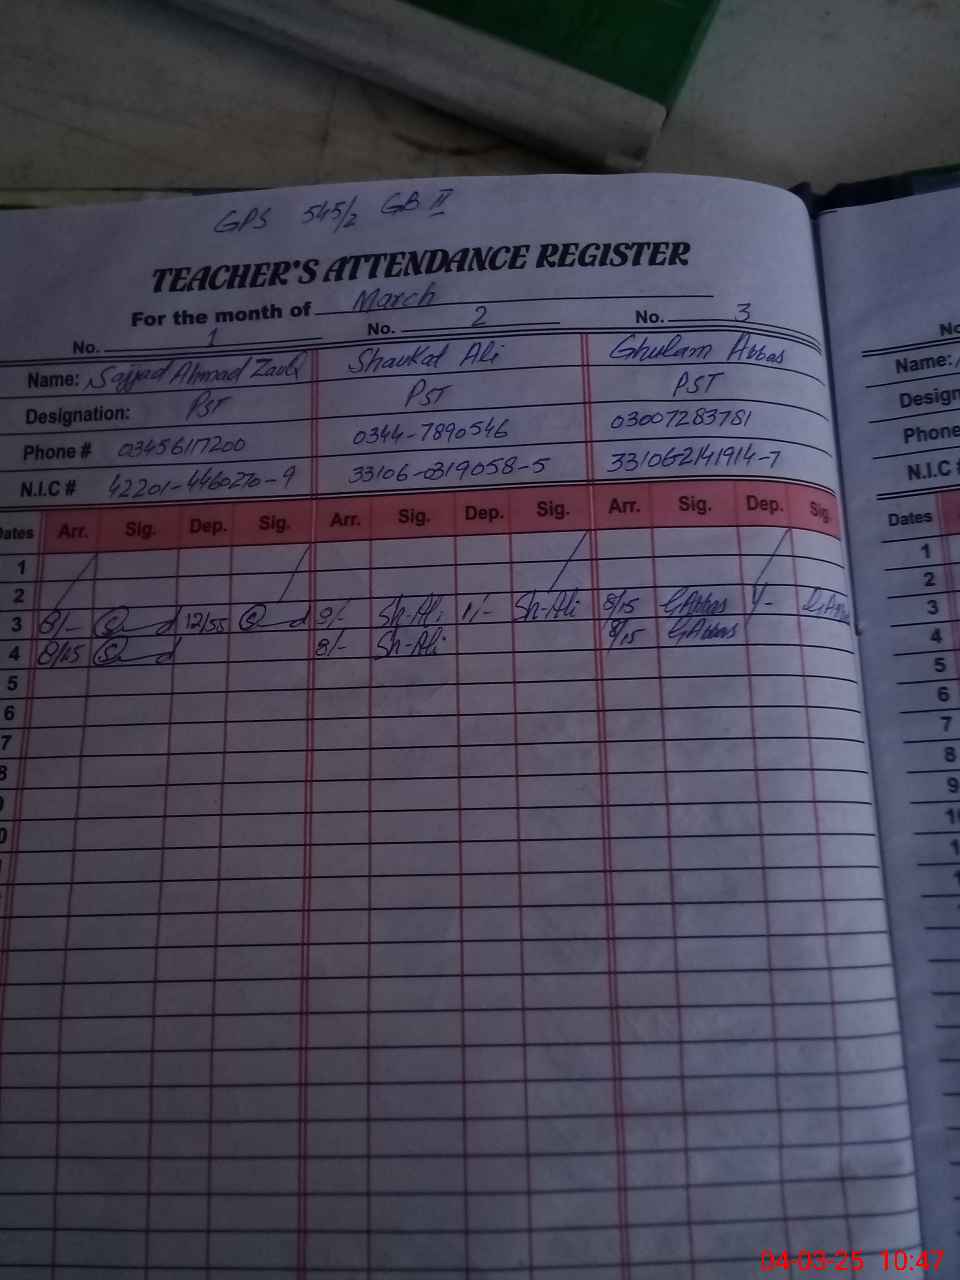 GPS 545/2 GB II
TEACHER'S ATTENDANCE REGISTER
For the month of March
No. 1 No. 2 No. 3
Name: Sajjad Ahmad Shaukat Ali Ghulam Abbas
Designation: PST PST PST
Phone # 03456117200 0344-7890546 03007283781
N.I.C # 42201-4460270-9 33106-0319058-5 331062141914-7
Dates Arr. Sig. Dep. Sig. Arr. Sig. Dep. Sig. Arr. Sig. Dep. Sig.
1
2
3 8/- 12/55 Sh-Ali 1/- Sh-Ali 8/15 GAbbas
4 8/15 8/- Sh-Ali 8/15 GAbbas
5
6
7
8
No
Name:
Design
Phone
N.I.C #
Dates
1
2
3
4
5
6
7
8
9
04-03-25 10:47